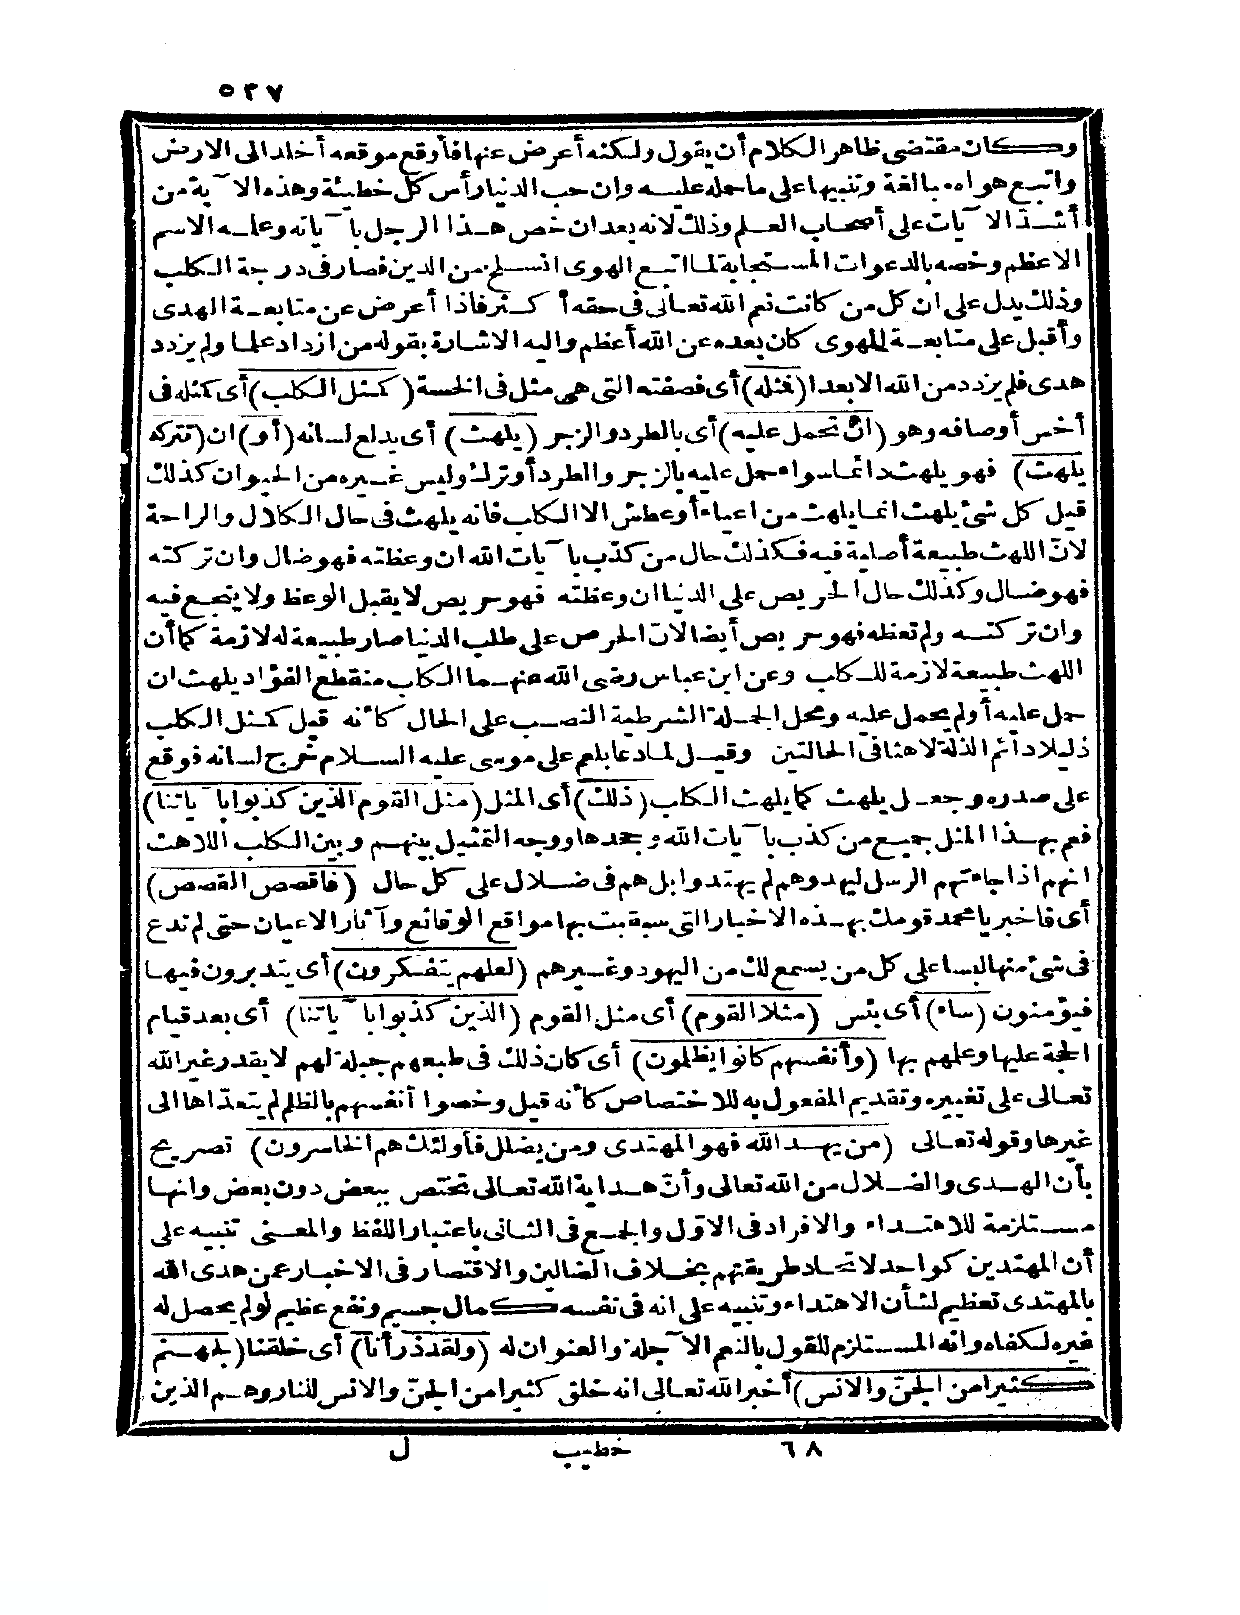 ٥٣٧
وكان مقتضى ظاهر الكلام أن يقول ولكنه أعرض عنها فأوقع موقعه أخلد الى الارض
واتبع هواه مبالغة وتنبيها على ما حمله عليه وان حب الدنيا رأس كل خطيئة وهذه الآية من
أشد الآيات على أصحاب العلم وذلك لانه بعد ان خص هذا الرجل بآياته وعلمه الاسم
الاعظم وخصه بالدعوات المستجابة لما اتبع الهوى انسلخ من الدين فصار فى درجة الكلب
وذلك يدل على ان كل من كانت نعم الله تعالى فى حقه أكثر فاذا أعرض عن متابعة الهدى
وأقبل على متابعة الهوى كان بعده عن الله أعظم واليه الاشارة بقوله من ازداد علما ولم يزدد
هدى فلم يزدد من الله الا بعدا (فمثله) أى فصفته التى هى مثل فى الخسة (كمثل الكلب) أى كمثله فى
أخس أوصافه وهو (انْ تحمل عليه) أى بالطرد والزجر (يلهث) أى يدلع لسانه (أو) ان (تتركه
يلهث) فهو يلهث دائما سواء حمل عليه بالزجر والطرد أو ترك وليس غيره من الحيوان كذلك
قيل كل شئ يلهث انما يلهث من اعياء أو عطش الا الكلب فانه يلهث فى حال الكلال والراحة
لانّ اللهث طبيعة أصلية فيه فكذلك حال من كذب بآيات الله ان وعظته فهو ضال وان تركته
فهو ضال وكذلك حال الحريص على الدنيا ان وعظته فهو حريص لا يقبل الوعظ ولا ينجع فيه
وان تركته ولم تعظه فهو حريص أيضا لانّ الحرص على طلب الدنيا صار طبيعة له لازمة كما أن
اللهث طبيعة لازمة للكلب وعن ابن عباس رضى الله عنهما الكلب منقطع الفؤاد يلهث ان
حمل عليه أو لم يحمل عليه ومحل الجملة الشرطية النصب على الحال كأنه قيل كمثل الكلب
ذليلا دائم الذلة لاهثا فى الحالتين وقيل لما دعا بلعم على موسى عليه السلام خرج لسانه فوقع
على صدره وجعل يلهث كما يلهث الكلب (ذلك) أى المثل (مثل القوم الذين كذبوا بآياتنا)
فعم بهذا المثل جميع من كذب بآيات الله وجحدها ووجه التمثيل بينهم وبين الكلب اللاهث
انهم اذا جاءتهم الرسل ليهدوهم لم يهتدوا بل هم فى ضلال على كل حال (فاقصص القصص)
أى فاخبر يا محمد قومك بهذه الاخبار التى سبقت بها مواقع الوقائع وآثار الاعيان حتى لم تدع
فى شئ منها لبسا على كل من يسمع لك من اليهود وغيرهم (لعلهم يتفكرون) أى يتدبرون فيها
فيؤمنون (ساء) أى بئس (مثلا القوم) أى مثل القوم (الذين كذبوا بآياتنا) أى بعد قيام
الحجة عليها وعلمهم بها (وأنفسهم كانوا يظلمون) أى كان ذلك فى طبعهم جبلة لهم لا يقدر غير الله
تعالى على تغييره وتقديم المفعول به للاختصاص كأنه قيل وخصوا أنفسهم بالظلم لم يتعدّاها الى
غيرها وقوله تعالى (من يهد الله فهو المهتدى ومن يضلل فأولئك هم الخاسرون) تصريح
بأن الهدى والضلال من الله تعالى وأنّ هداية الله تعالى تختص ببعض دون بعض وانها
مستلزمة للاهتداء والافراد فى الاوّل والجمع فى الثانى باعتبار اللفظ والمعنى تنبيه على
أن المهتدين كواحد لاتحاد طريقتهم بخلاف الضالين والاقتصار فى الاخبار عن هدى الله
بالمهتدى تعظيم لشأن الاهتداء وتنبيه على انه فى نفسه كمال جسيم ونفع عظيم لو لم يحصل له
غيره لكفاه وانه المستلزم للقول بالنعم الآجلة والعنوان له (ولقد ذرأنا) أى خلقنا (لجهنم
كثيرا من الجنّ والانس) أخبر الله تعالى انه خلق كثيرا من الجنّ والانس للنار وهم الذين
٦٨ خطيب ل